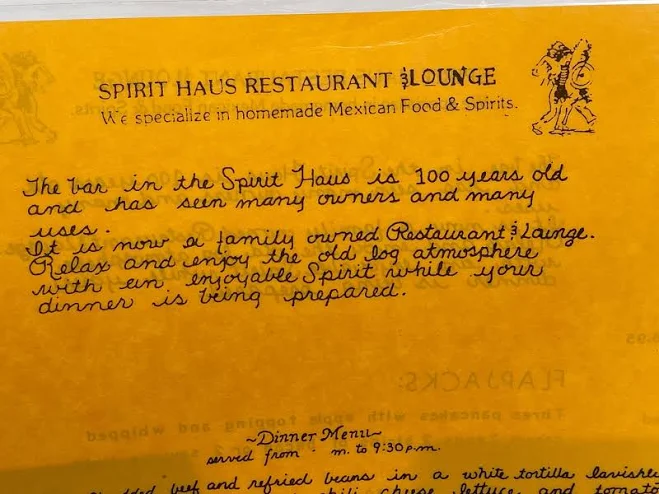 SPIRIT HAUS RESTAURANT & LOUNGE
We specialize in homemade Mexican Food & Spirits.
The bar in the Spirit Haus is 100 years old
and has seen many owners and many
uses.
It is now a family owned Restaurant & Lounge.
Relax and enjoy the old log atmosphere
with an enjoyable Spirit while your
dinner is being prepared.
5.95
FLAPJACKS:
Three pancakes with apple topping and whipped
~Dinner Menu~
served from m. to 9:30 p.m.
beef and refried beans in a white tortilla
chili, cheese, lettuce, and